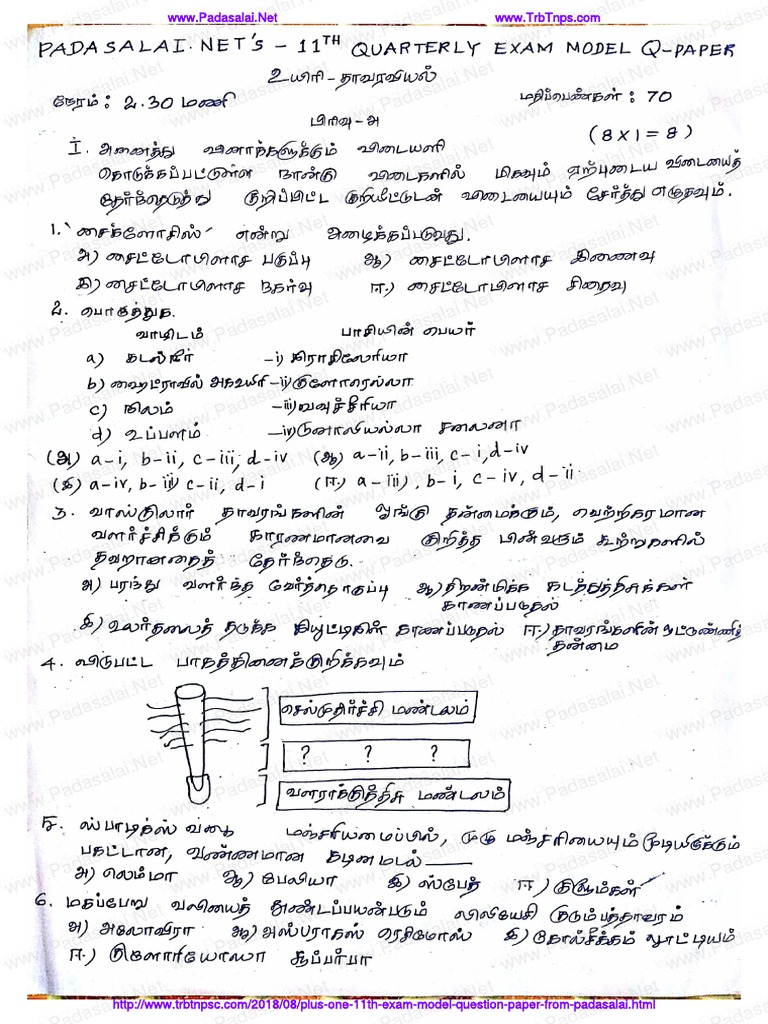 www.Padasalai.Net www.TrbTnps.com
PADASALAI.NET'S - 11TH QUARTERLY EXAM MODEL Q-PAPER
உயிரி - தாவரவியல்
நேரம் : 2.30 மணி மதிப்பெண்கள் : 70
பிரிவு - அ
(8 X 1 = 8)
I. அனைத்து வினாக்களுக்கும் விடையளி
கொடுக்கப்பட்டுள்ள நான்கு விடைகளில் மிகவும் ஏற்புடைய விடையைத்
தேர்ந்தெடுத்து குறிப்பிட்ட குறியீட்டுடன் விடையையும் சேர்த்து எழுதவும்.
1. 'சைக்ளோசிஸ்' என்று அழைக்கப்படுவது.
அ) சைட்டோபிளாச பகுப்பு ஆ) சைட்டோபிளாச இணைவு
இ) சைட்டோபிளாச நகர்வு ஈ) சைட்டோபிளாச சிறைவு
2. பொருத்துக.
வாழிடம் பாசியின் பெயர்
a) கடல்நீர் -i) கிராசிலேரியா
b) ஹைட்ராவில் அகஉயிரி -ii) குளோரெல்லா
c) நிலம் -iii) வவுச்சீரியா
d) உப்பளம் -iv) டுனாலியல்லா சலைனா
(அ) a-i, b-ii, c-iii, d-iv (ஆ) a-ii, b-iii, c-i, d-iv
(இ) a-iv, b-iii c-ii, d-i (ஈ) a-iii), b-i, c-iv, d-ii
3. வாஸ்குலார் தாவரங்களின் ஓங்கு தன்மைக்கும், வெற்றிகரமான
வளர்ச்சிக்கும் காரணமானவை குறித்த பின்வரும் கூற்றுகளில்
தவறானதைத் தேர்ந்தெடு.
அ) பரந்து வளர்ந்த வேர்த்தொகுப்பு ஆ) திறன்மிக்க கடத்துத்திசுக்கள்
காணப்படுதல்
இ) உலர்தலைத் தடுக்க கியூட்டிகிள் காணப்படுதல் ஈ) தாவரங்களின் ஒட்டுண்ணித்
தன்மை
4. விடுபட்ட பாகத்தினைக்குறிக்கவும்
செல்முதிர்ச்சி மண்டலம்
? ? ?
வளராக்குத்திசு மண்டலம்
5. ஸ்பாடிக்ஸ் வகை மஞ்சரியமைப்பில், முழு மஞ்சரியையும் மூடியிருக்கும்
பகட்டான, வண்ணமான கடினமடல் ____
அ) லெம்மா ஆ) பேலியா இ) ஸ்பேத் ஈ) குளும்கள்
6. மகப்பேறு வலியைத் தூண்டப்பயன்படும் லிலியேசி குடும்பத்தாவரம்
அ) அலோவிரா ஆ) அஸ்பராகஸ் ரெசிமோஸ் இ) கோல்சிக்கம் லூட்டியம்
ஈ) குளோரியோஸா சூப்பர்பா
http://www.trbtnpsc.com/2018/08/plus-one-11th-exam-model-question-paper-from-padasalai.html